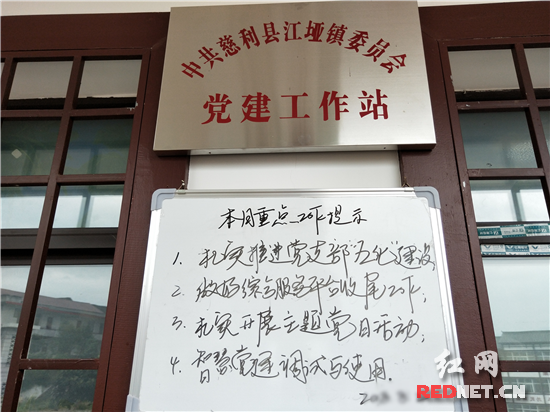 中共慈利县江垭镇委员会
党建工作站
本月重点工作提示
1. 扎实推进党支部五化建设
2. 做好综合服务平台收尾工作;
3. 扎实开展主题党日活动;
4. 智慧党建调试与使用.
红网
REDNET.CN